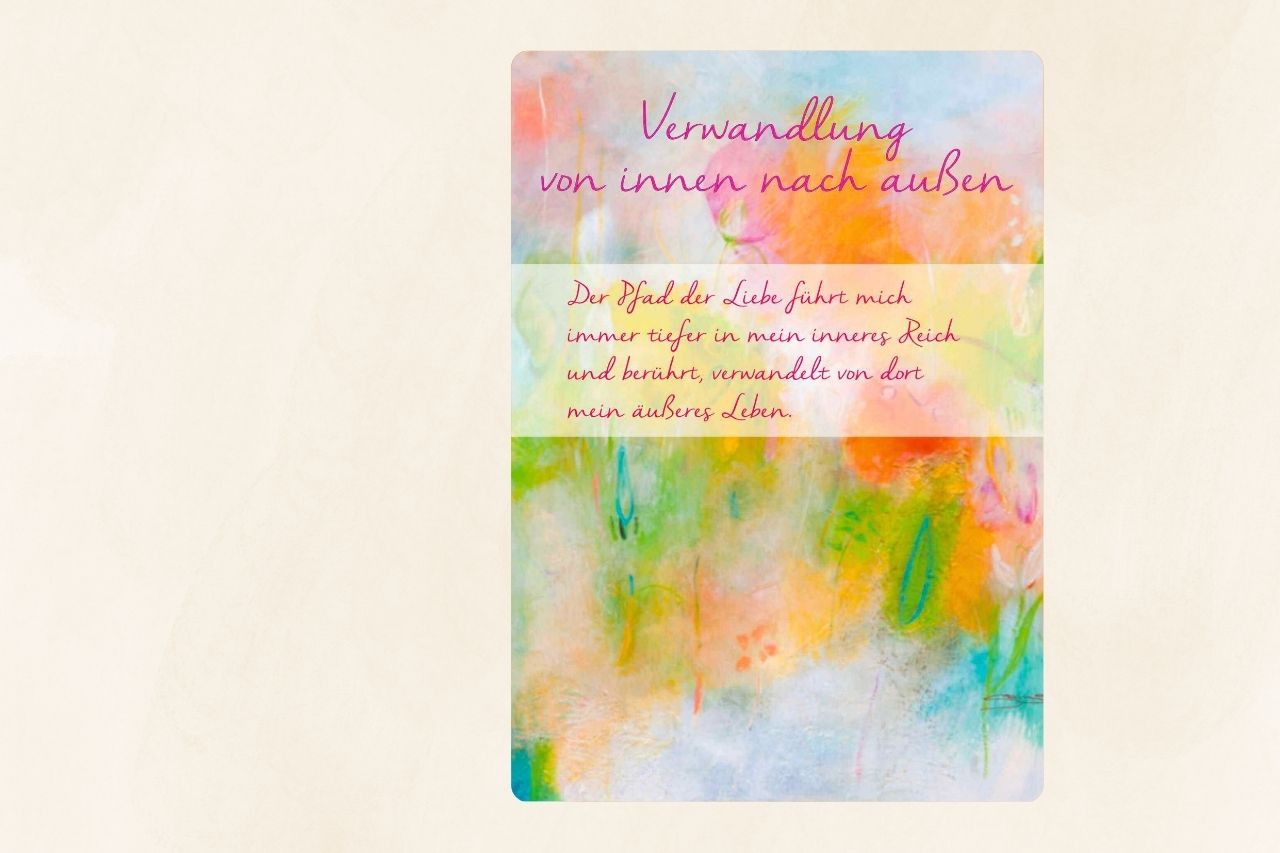 Verwandlung
von innen nach außen
Der Pfad der Liebe führt mich
immer tiefer in mein inneres Reich
und berührt, verwandelt von dort
mein äußeres Leben.